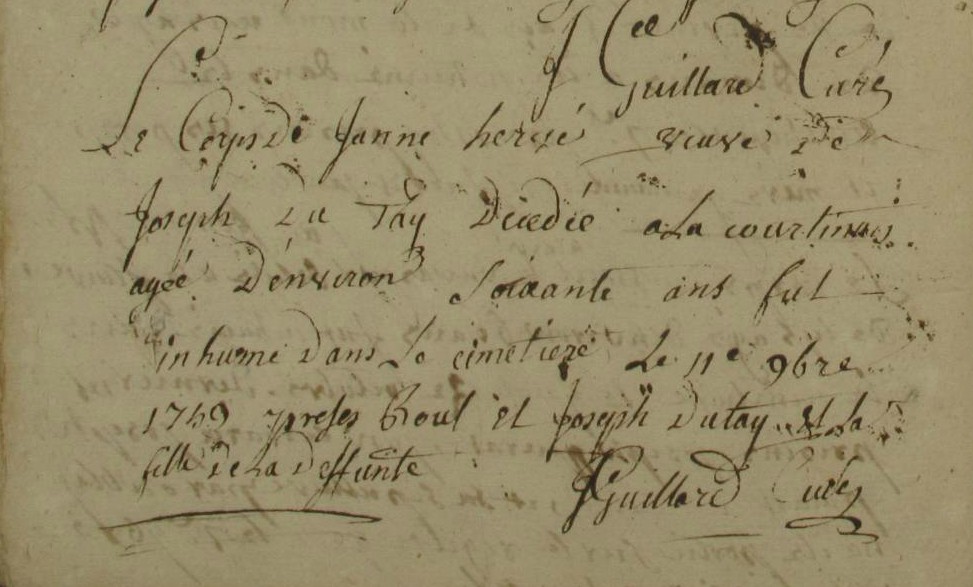 J Guillard Curé
Le Corps de Janne hervé veuve de
Joseph Du Tay Décedée a La courtinais
ageé D'environ Soixante ans fut
inhumé dans Le cimetiere Le 11e 9bre
1749 presens Raoul Et Joseph Dutay et La
fille De La Deffunte
J Guillard Curé